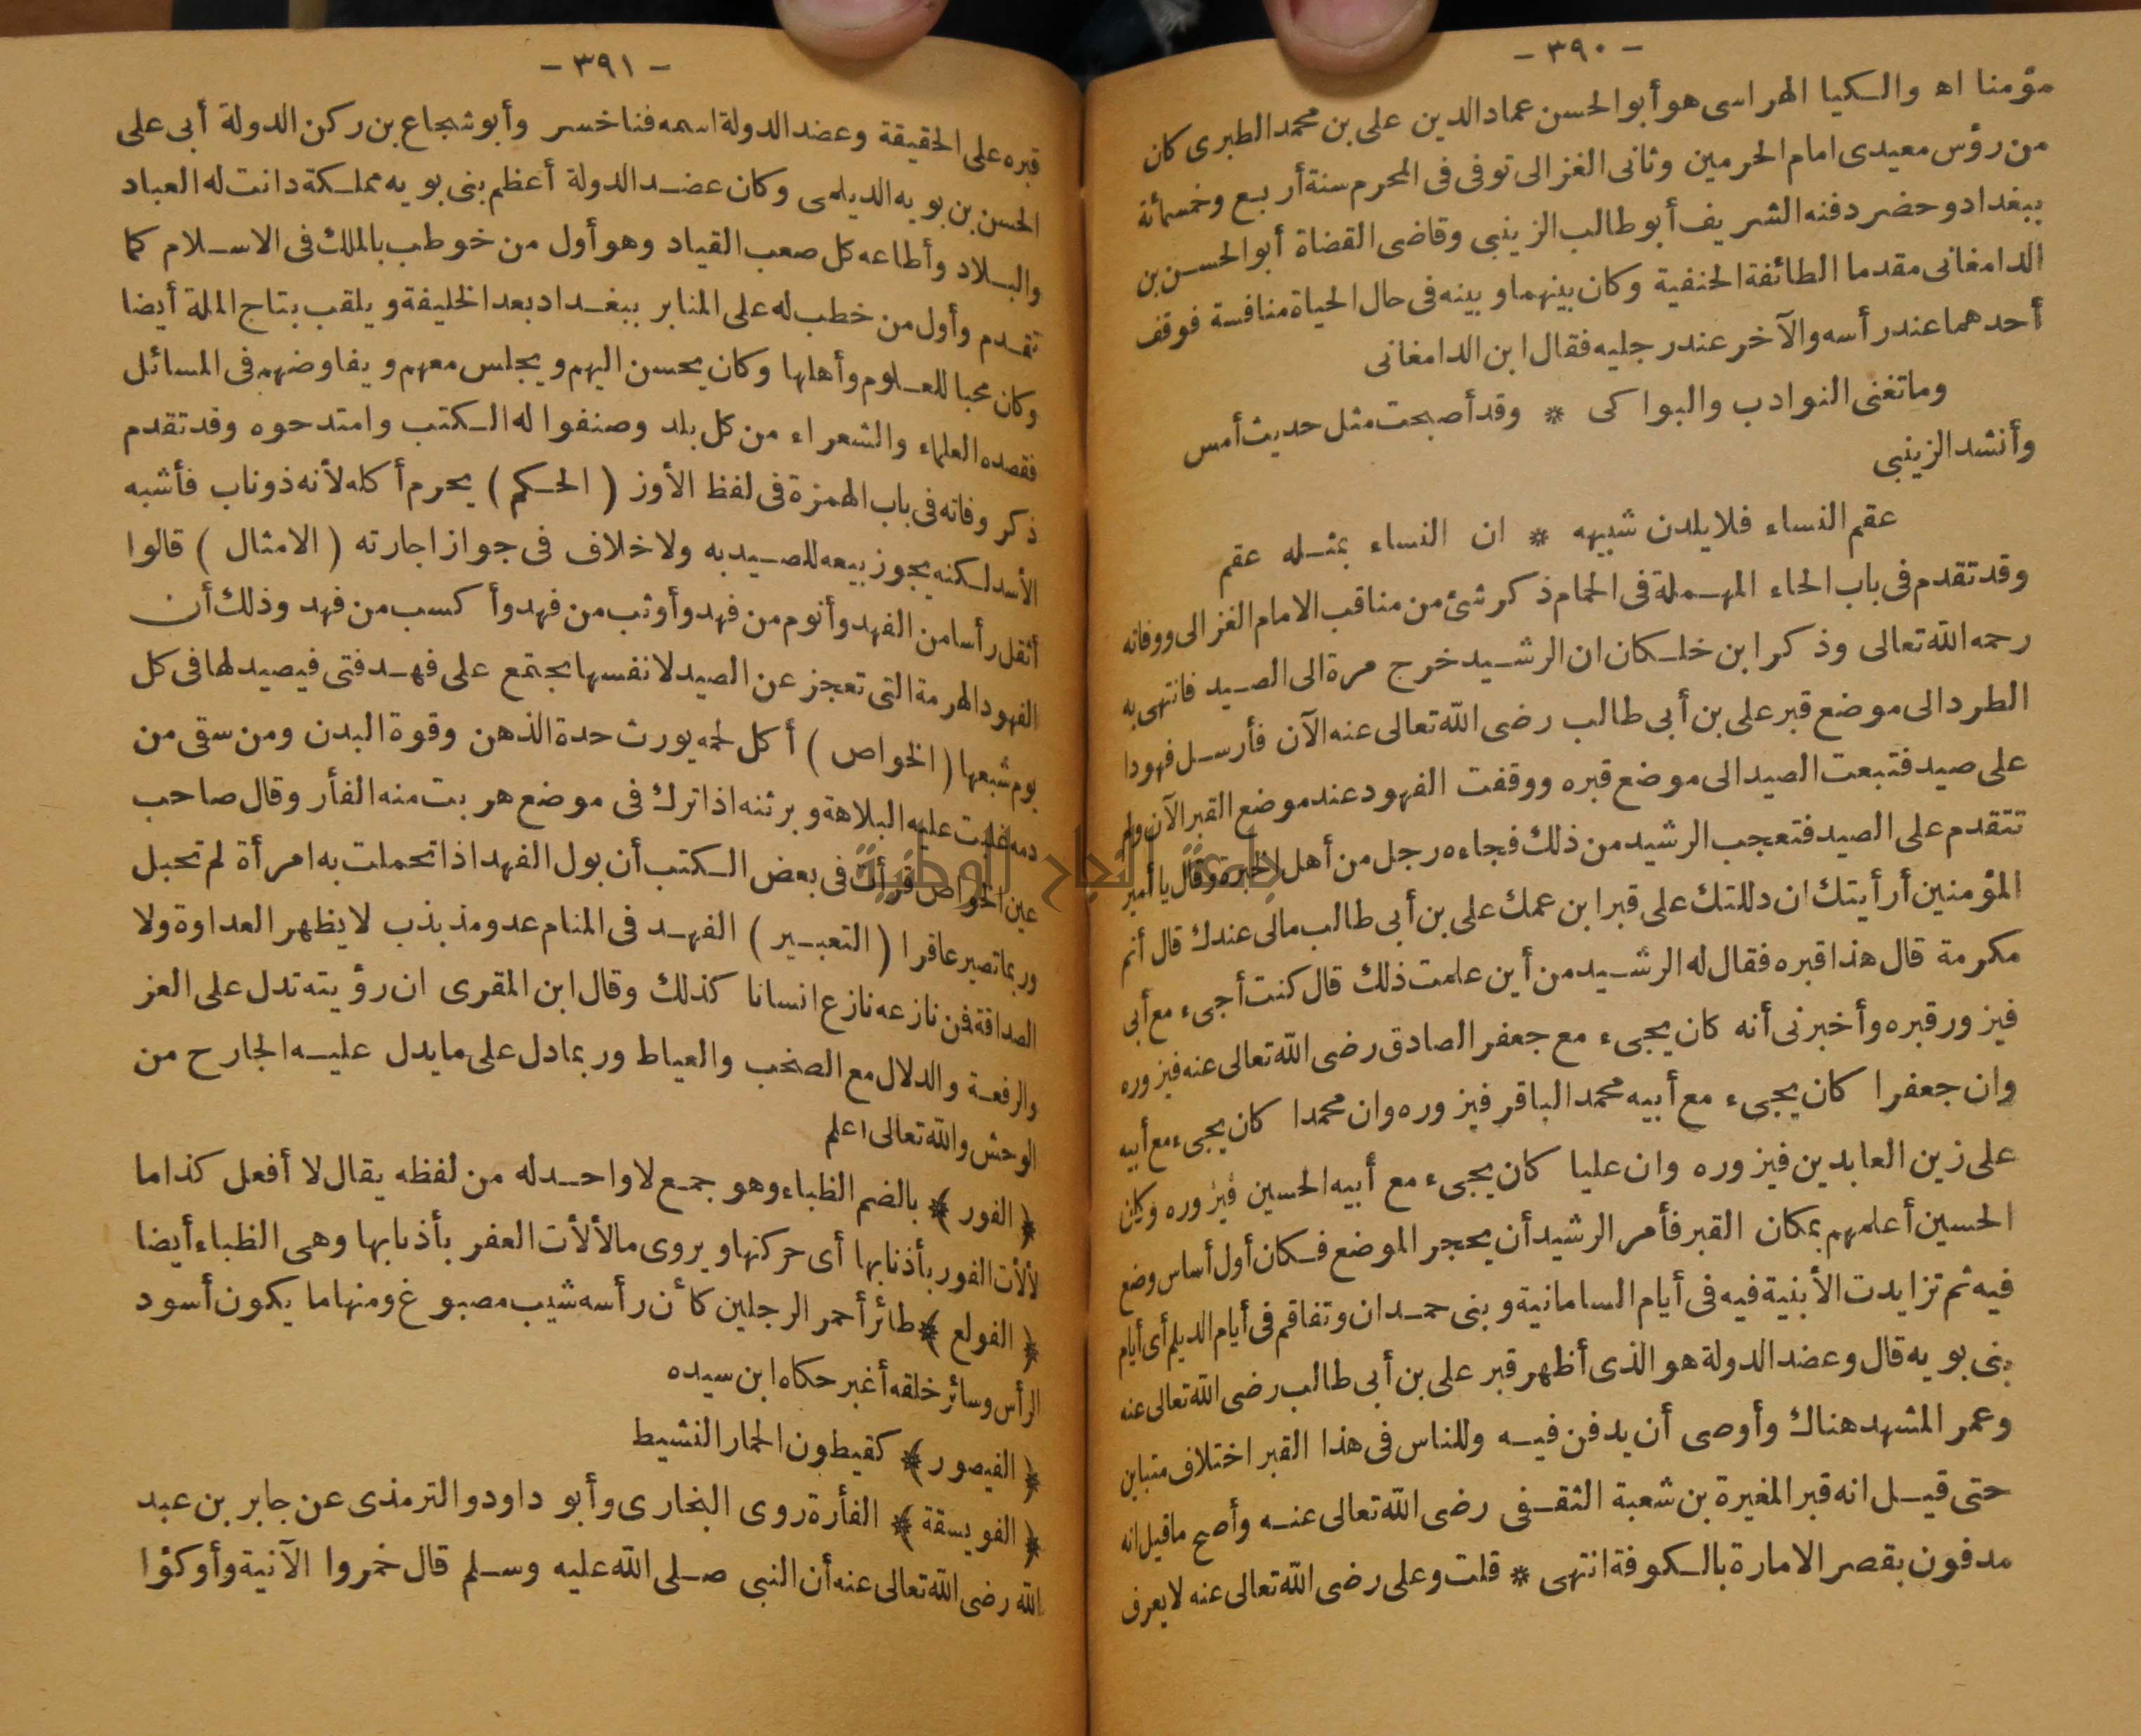 - ٣٩٠ -
مؤمنا اه والكيا الهراسى هو أبو الحسن عماد الدين على بن محمد الطبرى كان
من رؤس معيدى امام الحرمين وثانى الغزالى توفى فى المحرم سنة أربع وخمسمائة
ببغداد وحضر دفنه الشريف أبو طالب الزينبى وقاضى القضاة أبو الحسن بن
الدامغانى مقدما الطائفة الحنفية وكان بينهما وبينه فى حال الحياة منافسة فوقف
أحدهما عند رأسه والآخر عند رجليه فقال ابن الدامغانى
وما تغنى النوادب والبواكى * وقد أصبحت مثل حديث أمس
وأنشد الزينبى
عقم النساء فلا يلدن شبيهه * ان النساء بمثله عقم
وقد تقدم فى باب الحاء المهملة فى الحمام ذكر شئ من مناقب الامام الغزالى ووفاته
رحمه الله تعالى وذكر ابن خلكان ان الرشيد خرج مرة الى الصيد فانتهى به
الطرد الى موضع قبر على بن أبى طالب رضى الله تعالى عنه الآن فأرسل فهودا
على صيد فتبعت الصيد الى موضع قبره ووقفت الفهود عند موضع القبر الآن ولم
تتقدم على الصيد فتعجب الرشيد من ذلك فجاءه رجل من أهل الخبرة وقال يا أمير
المؤمنين أرأيتك ان دللتك على قبر ابن عمك على بن أبى طالب مالى عندك قال أتم
مكرمة قال هذا قبره فقال له الرشيد من أين علمت ذلك قال كنت أجىء مع أبى
فيزور قبره وأخبرنى أنه كان يجىء مع جعفر الصادق رضى الله تعالى عنه فيزوره
وان جعفرا كان يجىء مع أبيه محمد الباقر فيزوره وان محمدا كان يجىء مع أبيه
على زين العابدين فيزوره وان عليا كان يجىء مع أبيه الحسين فيزوره وكان
الحسين أعلمهم بمكان القبر فأمر الرشيد أن يحجر الموضع فكان أول أساس وضع
فيه ثم تزايدت الأبنية فيه فى أيام السامانية وبنى حمدان وتفاقم فى أيام الديلم أى أيام
بنى بويه قال وعضد الدولة هو الذى أظهر قبر على بن أبى طالب رضى الله تعالى عنه
وعمر المشهد هناك وأوصى أن يدفن فيه وللناس فى هذا القبر اختلاف متباين
حتى قيل انه قبر المغيرة بن شعبة الثقفى رضى الله تعالى عنه وأصح ما قيل انه
مدفون بقصر الامارة بالكوفة انتهى * قلت وعلى رضى الله تعالى عنه لا يعرف
- ٣٩١ -
قبره على الحقيقة وعضد الدولة اسمه فناخسر وأبو شجاع بن ركن الدولة أبى على
الحسن بن بويه الديلمى وكان عضد الدولة أعظم بنى بويه مملكة دانت له العباد
والبلاد وأطاعه كل صعب القياد وهو أول من خوطب بالملك فى الاسلام كما
تقدم وأول من خطب له على المنابر ببغداد بعد الخليفة ويلقب بتاج الملة أيضا
وكان محبا للعلوم وأهلها وكان يحسن اليهم ويجلس معهم ويفاوضهم فى المسائل
فقصده العلماء والشعراء من كل بلد وصنفوا له الكتب وامتدحوه وقد تقدم
ذكر وفاته فى باب الهمزة فى لفظ الأوز ( الحكم ) يحرم أكله لأنه ذو ناب فأشبه
الأسد لكنه يجوز بيعه للصيد به ولا خلاف فى جواز اجارته ( الامثال ) قالوا
أثقل رأسا من الفهد وأنوم من فهد وأوثب من فهد وأكسب من فهد وذلك أن
الفهود الهرمة التى تعجز عن الصيد لانفسها يجتمع على فهد فتى فيصيد لها فى كل
يوم شبعها ( الخواص ) أكل لحمه يورث حدة الذهن وقوة البدن ومن سقى من
دمه غلبت عليه البلاهة وبرثنه اذا ترك فى موضع هربت منه الفأر وقال صاحب
عين الخواص قرأت فى بعض الكتب أن بول الفهد اذا تحملت به امرأة لم تحبل
وربما تصير عاقرا ( التعبير ) الفهد فى المنام عدو مذبذب لا يظهر العداوة ولا
الصداقة فمن نازعه نازع انسانا كذلك وقال ابن المقرى ان رؤيته تدل على العز
والرفعة والدلال مع الصخب والعياط وربما دل على ما يدل عليه الجارح من
الوحش والله تعالى اعلم
﴿ الفور ﴾ بالضم الظباء وهو جمع لا واحد له من لفظه يقال لا أفعل كذا ما
لألأت الفور بأذنابها أى حركتها ويروى ما لألأت العفر بأذنابها وهى الظباء أيضا
﴿ الفولع ﴾ طائر أحمر الرجلين كأن رأسه شيب مصبوغ ومنها ما يكون أسود
الرأس وسائر خلقه أغبر حكاه ابن سيده
﴿ الفيصور ﴾ كقيطون الحمار النشيط
﴿ الفويسقة ﴾ الفأرة روى البخارى وأبو داود والترمذى عن جابر بن عبد
الله رضى الله تعالى عنه أن النبى صلى الله عليه وسلم قال خمروا الآنية وأوكؤا
جامعة النجاح الوطنية